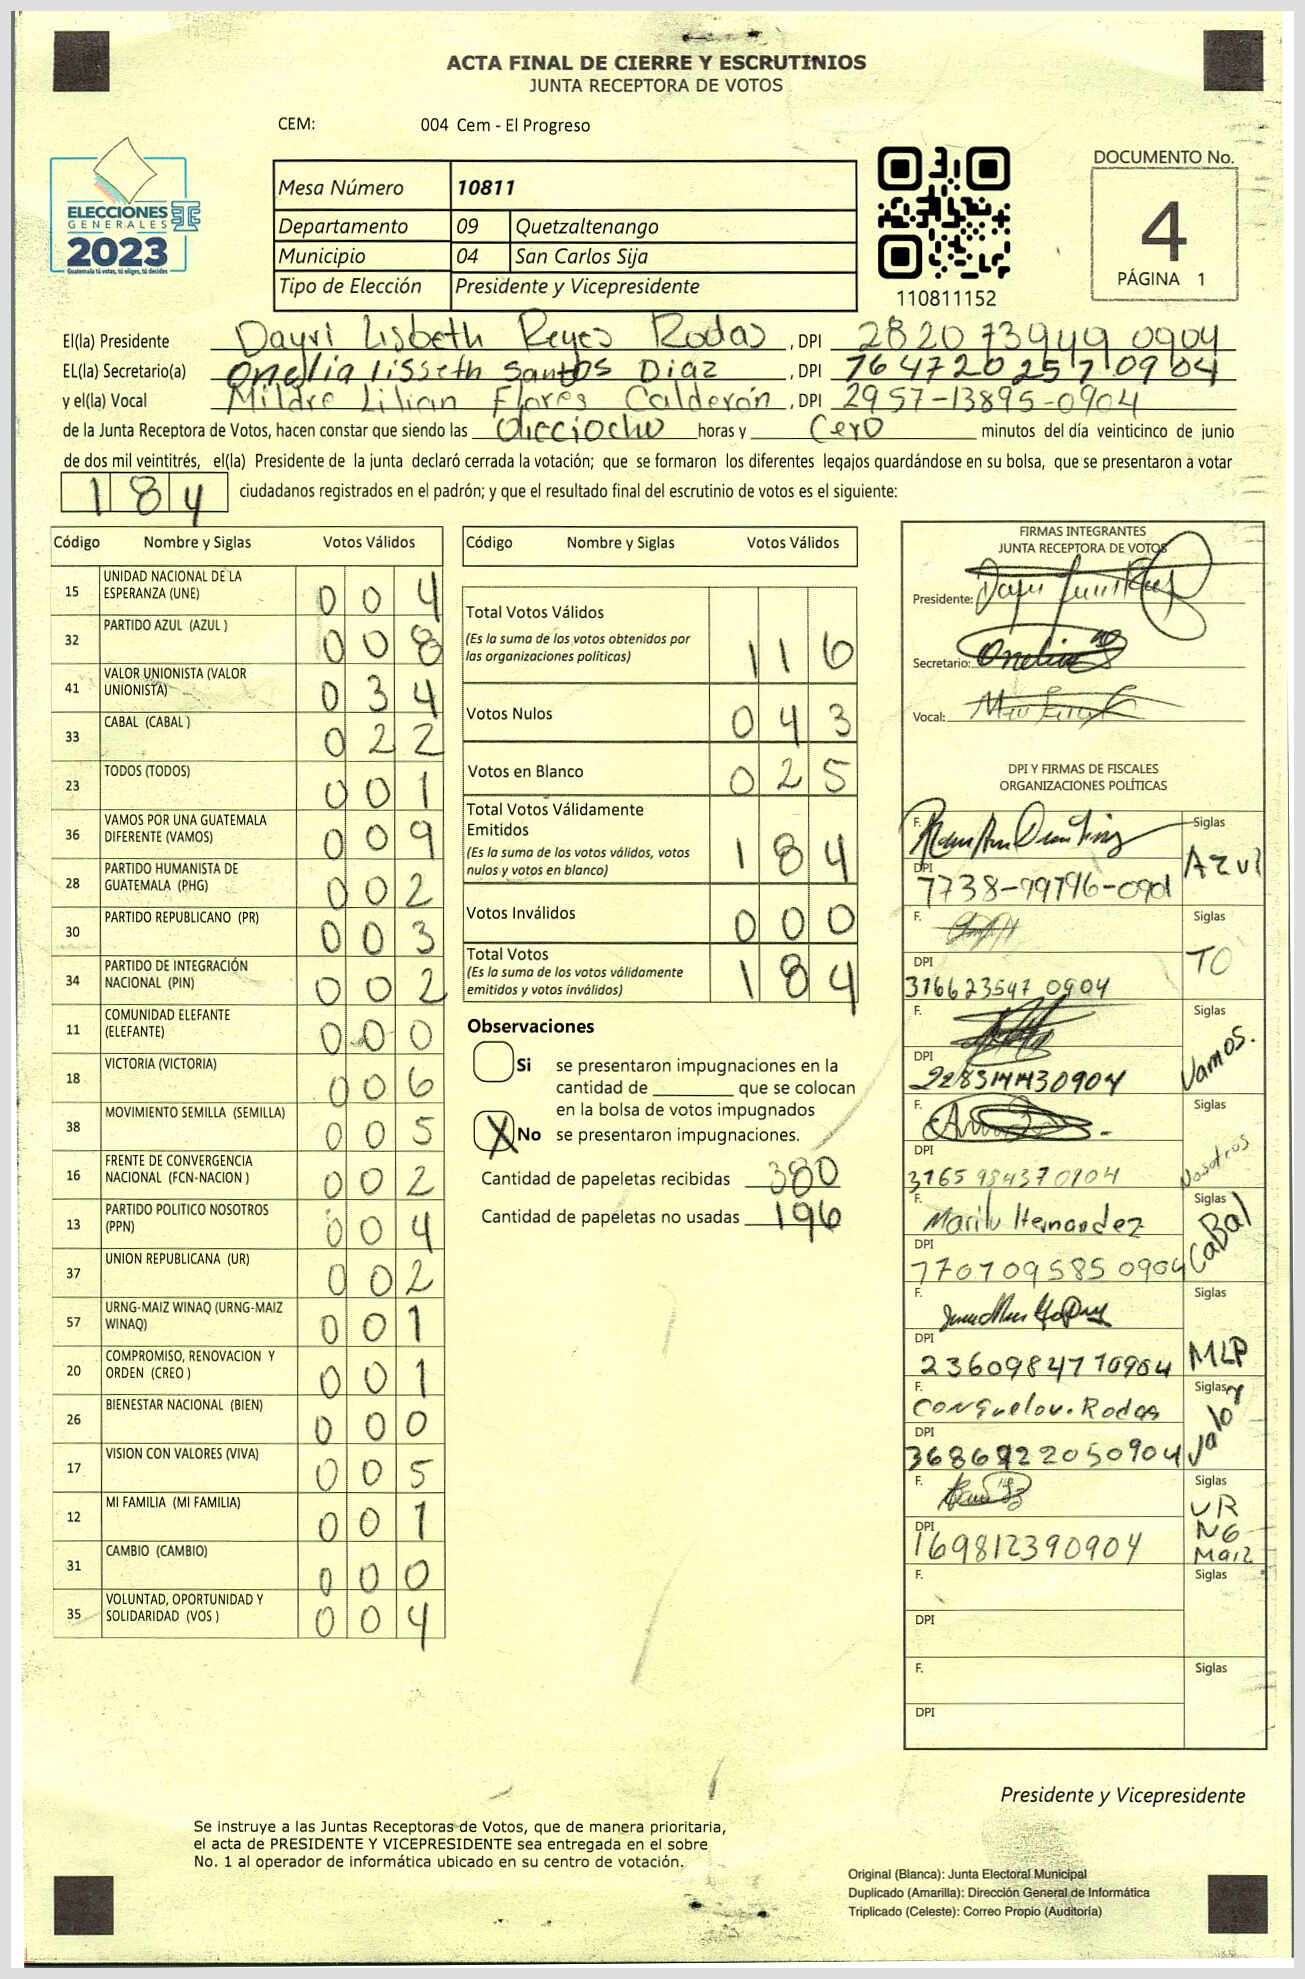 ACTA FINAL DE CIERRE Y ESCRUTINIOS
JUNTA RECEPTORA DE VOTOS
CEM: 004 Cem - El Progreso
ELECCIONES
GENERALES
2023
Guatemala tú votas, tú eliges, tú decides
Mesa Número 10811
Departamento 09 Quetzaltenango
Municipio 04 San Carlos Sija
Tipo de Elección Presidente y Vicepresidente
110811152
DOCUMENTO No.
4
PÁGINA 1
El(la) Presidente Dayri Lisbeth Reyes Rodas, DPI 2820 73949 0904
EL(la) Secretario(a) Onelia Lisseth Santos Diaz, DPI 764720257 0904
y el(la) Vocal Mildre Lilian Flores Calderón, DPI 2957-13895-0904
de la Junta Receptora de Votos, hacen constar que siendo las Dieciocho horas y Cero minutos del día veinticinco de junio
de dos mil veintitrés, el(la) Presidente de la junta declaró cerrada la votación; que se formaron los diferentes legajos guardándose en su bolsa, que se presentaron a votar
184 ciudadanos registrados en el padrón; y que el resultado final del escrutinio de votos es el siguiente:
Código Nombre y Siglas Votos Válidos
15 UNIDAD NACIONAL DE LA ESPERANZA (UNE) 0 0 4
32 PARTIDO AZUL (AZUL ) 0 0 8
41 VALOR UNIONISTA (VALOR UNIONISTA) 0 3 4
33 CABAL (CABAL ) 0 2 2
23 TODOS (TODOS) 0 0 1
36 VAMOS POR UNA GUATEMALA DIFERENTE (VAMOS) 0 0 9
28 PARTIDO HUMANISTA DE GUATEMALA (PHG) 0 0 2
30 PARTIDO REPUBLICANO (PR) 0 0 3
34 PARTIDO DE INTEGRACIÓN NACIONAL (PIN) 0 0 2
11 COMUNIDAD ELEFANTE (ELEFANTE) 0 0 0
18 VICTORIA (VICTORIA) 0 0 6
38 MOVIMIENTO SEMILLA (SEMILLA) 0 0 5
16 FRENTE DE CONVERGENCIA NACIONAL (FCN-NACION ) 0 0 2
13 PARTIDO POLITICO NOSOTROS (PPN) 0 0 4
37 UNION REPUBLICANA (UR) 0 0 2
57 URNG-MAIZ WINAQ (URNG-MAIZ WINAQ) 0 0 1
20 COMPROMISO, RENOVACION Y ORDEN (CREO ) 0 0 1
26 BIENESTAR NACIONAL (BIEN) 0 0 0
17 VISION CON VALORES (VIVA) 0 0 5
12 MI FAMILIA (MI FAMILIA) 0 0 1
31 CAMBIO (CAMBIO) 0 0 0
35 VOLUNTAD, OPORTUNIDAD Y SOLIDARIDAD (VOS ) 0 0 4
Código Nombre y Siglas Votos Válidos
Total Votos Válidos 1 1 6
(Es la suma de los votos obtenidos por
las organizaciones políticas)
Votos Nulos 0 4 3
Votos en Blanco 0 2 5
Total Votos Válidamente
Emitidos 1 8 4
(Es la suma de los votos válidos, votos
nulos y votos en blanco)
Votos Inválidos 0 0 0
Total Votos 1 8 4
(Es la suma de los votos válidamente
emitidos y votos inválidos)
Observaciones
Si se presentaron impugnaciones en la
cantidad de ________ que se colocan
en la bolsa de votos impugnados
X No se presentaron impugnaciones.
Cantidad de papeletas recibidas 380
Cantidad de papeletas no usadas 196
FIRMAS INTEGRANTES
JUNTA RECEPTORA DE VOTOS
Presidente:
Secretario: Onelia
Vocal:
DPI Y FIRMAS DE FISCALES
ORGANIZACIONES POLÍTICAS
F. Siglas
DPI 7738-79796-0901 Azul
F. Siglas
DPI TO
316623547 0904
F. Siglas
DPI Vamos.
228314430904
F. Siglas
DPI Nosotros
3165 984370904
F. Marilu Hernandez Siglas
DPI CaBal
770709585 0904
F. Siglas
DPI MLP
236098477 0904
F. Consuelo v. Rodas Siglas
DPI Valor
3686922050904
F. Siglas
DPI URNG Maiz
169812390904
F. Siglas
DPI
F. Siglas
DPI
Presidente y Vicepresidente
Se instruye a las Juntas Receptoras de Votos, que de manera prioritaria,
el acta de PRESIDENTE Y VICEPRESIDENTE sea entregada en el sobre
No. 1 al operador de informática ubicado en su centro de votación.
Original (Blanca): Junta Electoral Municipal
Duplicado (Amarilla): Dirección General de Informática
Triplicado (Celeste): Correo Propio (Auditoría)